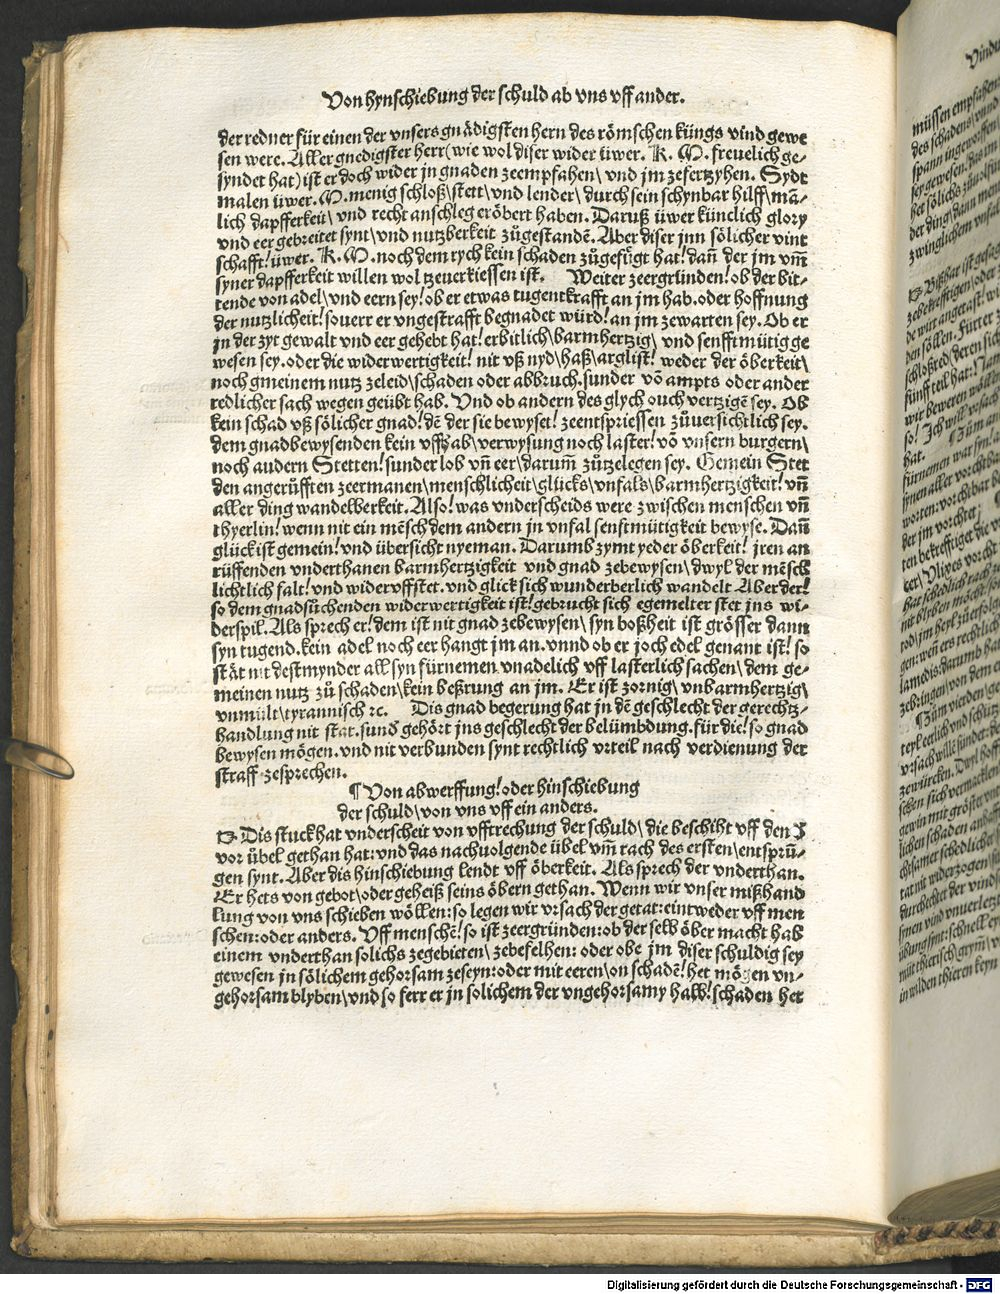 Von hynschiebung der schuld ab vns vff ander.
der redner für einen der vnsers gnädigsten hern des römschen küngs vind gewe
sen were. Aller gnedigster herr (wie wol diser wider üwer. K. M. freuelich ge-
syndet hat) ist er doch wider jn gnaden zeempfahen/ vnd jm zefertzyhen. Sydt
malen üwer. M. menig schloß/ stett/ vnd lender/ durch sein schynbar hilff/ mā-
lich dapfferkeit/ vnd recht anschleg eröbert haben. Daruß üwer künclich glory
vnd eer gebreitet synt/ vnd nutzberkeit zůgestandē. Aber diser jnn sölicher vint
schafft! üwer. K. M. noch dem rych kein schaden zůgefügt hat! dañ der jm vm̄
syner dapfferkeit willen wol tzeuerkiessen ist. Weiter zeergründen! ob der bit-
tende von adel/ vnd eern sey! ob er etwas tugentkrafft an jm hab. oder hoffnung
der nutzlicheit! souerr er vngestrafft begnadet würd! an jm zewarten sey. Ob er
jn der zyt gewalt vnd eer gehebt hat! erbitlich/ barmhertzig/ vnd senfftmütig ge
wesen sey. oder die widerwertigkeit! nit vß nyd/ haß/ arglist! weder der öberkeit/
noch gmeinem nutz zeleid/ schaden oder abbruch. sunder vō ampts oder ander
redlicher sach wegen geübt hab. Vnd ob andern des glych ouch vertzigē sey. Ob
kein schad vß sölicher gnad! dē der sie bewyset! zeentspriessen zůuersichtlich sey.
dem gnadbewysenden kein vffhab/ verwysung noch laster! vō vnsern burgern/
noch andern Stetten! sunder lob vñ eer/ darum̄ zůtzelegen sey. Gemein Stet
den angerüfften zeermanen/ menschlicheit/ glücks/ vnfals/ barmhertzigkeit! vñ
aller ding wandelberkeit. Also! was vnderscheids were zwischen menschen vñ
thyerlin! wenn nit ein mēsch dem andern jn vnfal senftmütigkeit bewyse. Dañ
glück ist gemein! vnd übersicht nyeman. Darumb zymt yeder öberkeit! jren an
rüffenden vnderthanen barmhertzigkeit vnd gnad zebewysen/ dwyl der mēsch
lichtlich falt! vnd wider vffstet. vnd glick sich wunderberlich wandelt Aber der!
so dem gnadsůchenden widerwertigkeit ist! gebrucht sich egemelter stet jns wi-
derspil. Als sprech er! dem ist nit gnad zebewysen/ syn boßheit ist grösser dann
syn tugend. kein adel noch eer hangt jm an. vnnd ob er joch edel genant ist! so
stät nit destmynder all syn fürnemen vnadelich vff lasterlich sachen/ dem ge-
meinen nutz zů schaden/ kein beßrung an jm. Er ist zornig/ vnbarmhertzig/
vnmült/ tyrannisch ⁊c. Dis gnad begerung hat jn dē geschlecht der gerechtz-
handlung nit stat. sunđ gehört jns geschlecht der belümbdung. für die! so gnad
bewysen mögen. vnd nit verbunden synt rechtlich vrteil nach verdienung der
straff zesprechen.
¶ Von abwerffung! oder hinschiebung
der schuld/ von vns vff ein anders.
Dis stuck hat vnderscheit von vfftrechung der schuld/ die beschiht vff den
vor übel gethan hat: vnd das nachuolgende übel vm̄ rach des ersten/ entsprü-
gen synt. Aber dis hinschiebung lendt vff öberkeit. Als sprech der vnderthan.
Er hets von gebot/ oder geheiß seins öbern gethan. Wenn wir vnser mißhand
lung von vns schieben wöllen: so legen wir vrsach der getat: eintweder vff men
schen: oder anders. Vff menschē! so ist zeergründen: ob der selb öber macht hab
einem vnderthan solichs zegebieten/ zebefelhen: oder obe jm diser schuldig sey
gewesen jn sölichem gehorsam zeseyn: oder mit eeren/ on schadē! het mögen vn-
gehorsam blyben/ vnd so ferr er jn solichem der vngehorsamy halb! schaden het
Digitalisierung gefördert durch die Deutsche Forschungsgemeinschaft - DFG